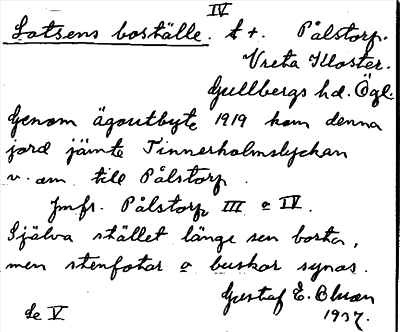 IV
Lotsens boställe. t +. Pålstorp.
Vreta Kloster.
Gullbergs hd. Ögl.
Genom ägoutbyte 1919 kom denna
jord jämte Tinnerholmslyckan
v. om till Pålstorp.
Jmfr. Pålstorp III o IV.
Själva stället länge sen borta,
men stenfotar o buskar synas.
Gustaf E. Bluan
1937.
de V